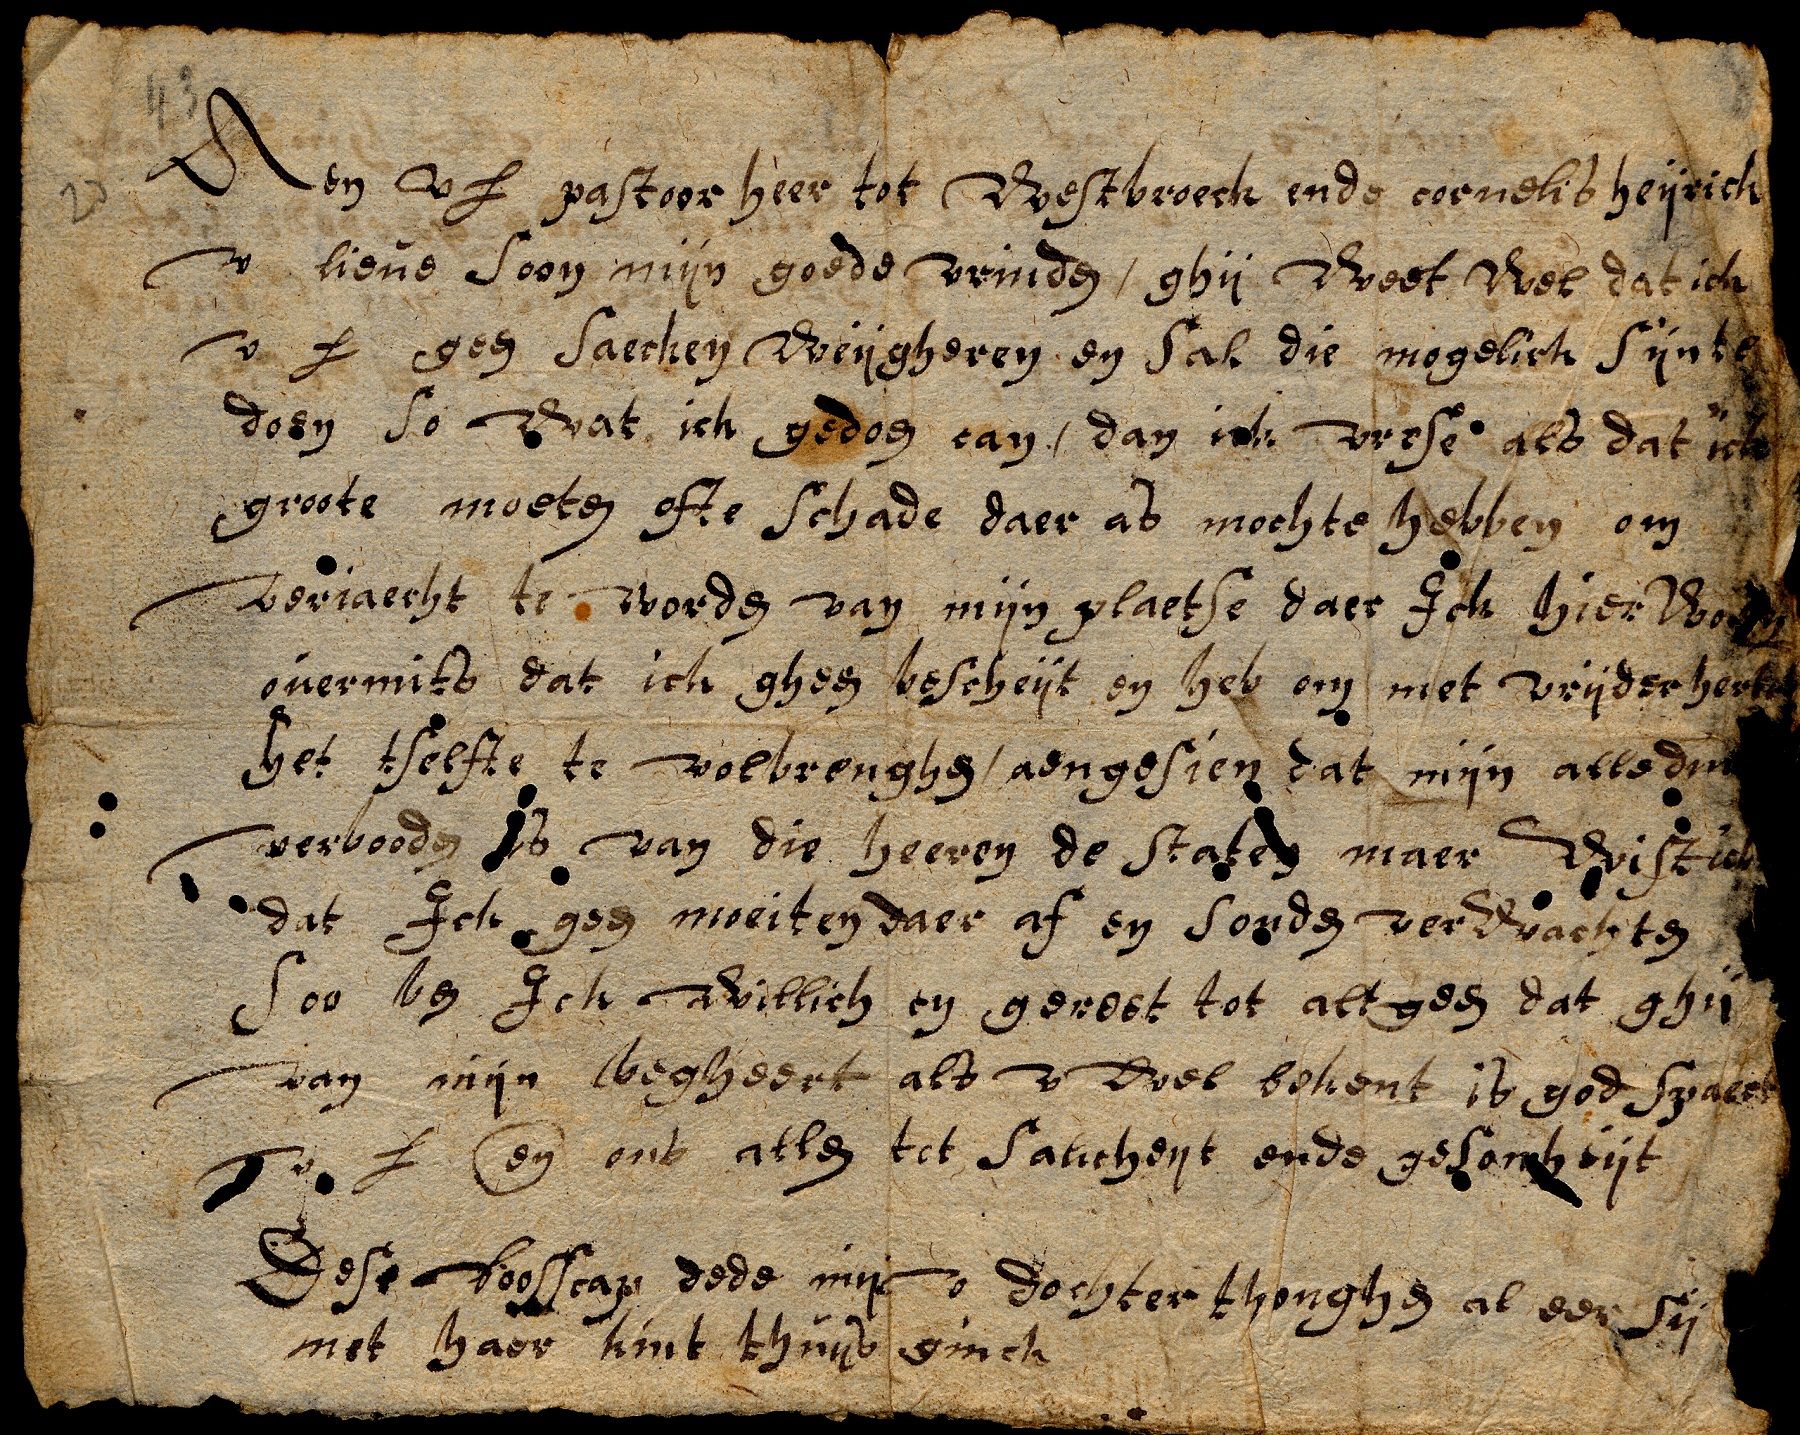 43
23
Aen v L pastoor heer tot Westbroeck ende cornelis heijrick
v lieue soon mijn goede vrinden / ghij weet wel dat ick
v L geen saecken weijgheren en sal die mogelick sijn te
doen so wat ick gedoen can / dan ick vrese als dat ick
groote moeten ofte schade daer as mochte hebben om
veriaecht te worden van mijn plaetse daer Ick hier
ouermits dat ick gheen bescheijt en heb om met vrijder
het tselfte te volbrenghen / aengesien dat mijn alle
verbooden is van die heeren de staten maer wist ick
dat Ick geen moeiten daer af en souden verwachten
Soo ben Ick willich en gereet tot altgeen dat ghij
van mijn begheert als v wel bekent is god spaert
v L en ons allen tot salicheijt ende gesontheijt
Dese boosscap dede mij v dochter thonghen al eer sij
met haer kint thuijs ginck